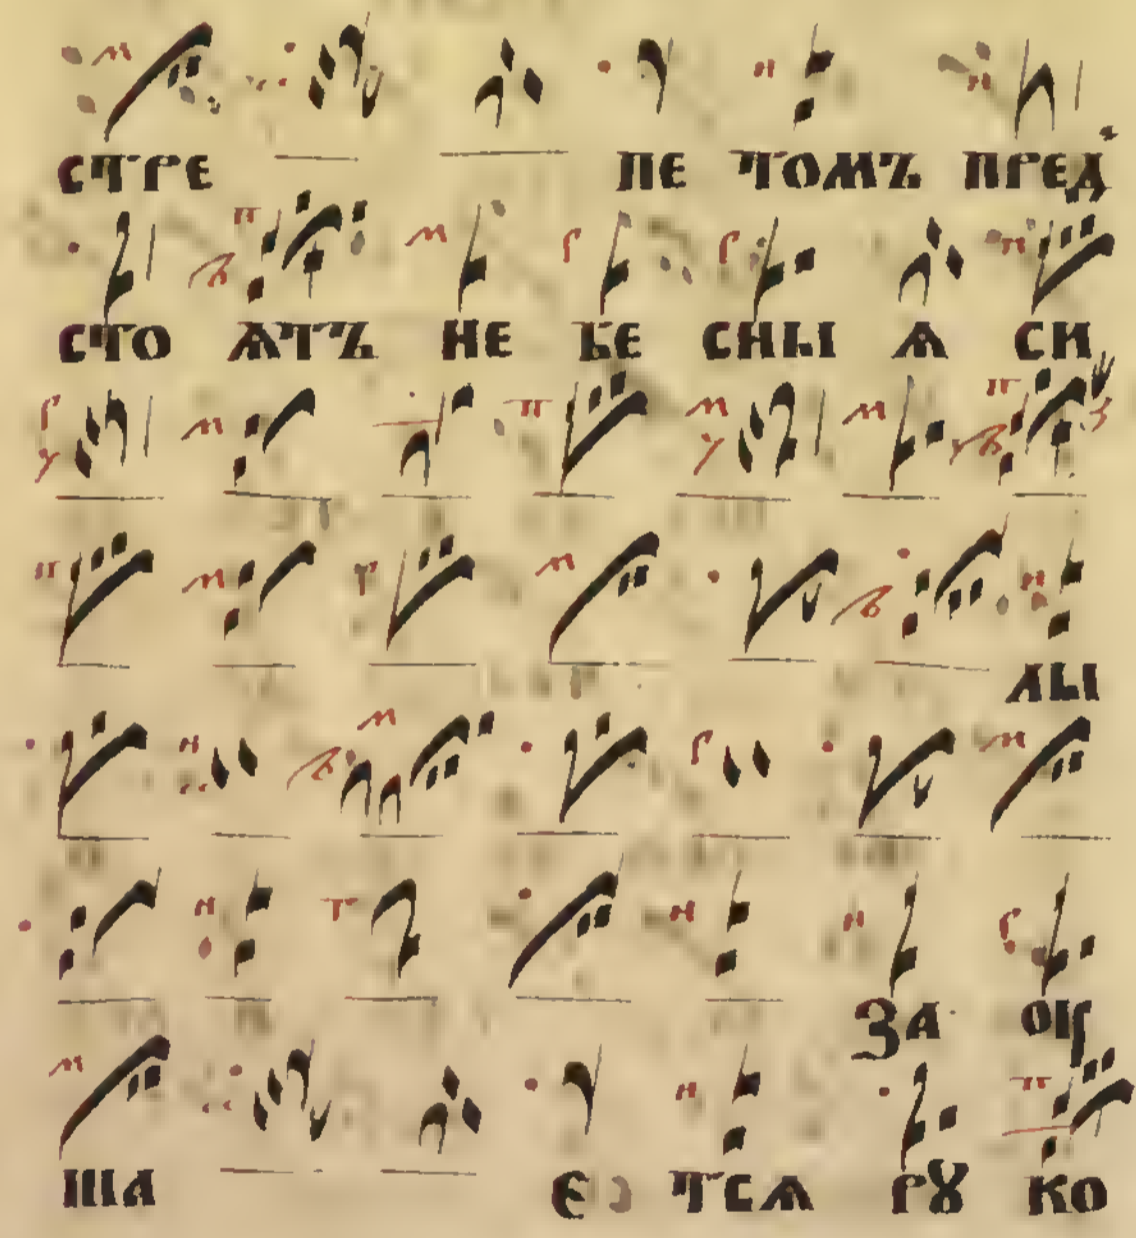 СТРЕ ПЕ ТОМЪ ПРЕД
СТО ѦТЪ НЕ БЕ СНЫ Ѧ СИ
ЛЫ
ЗА ОУ
ША Е ТСѦ РꙊ КО